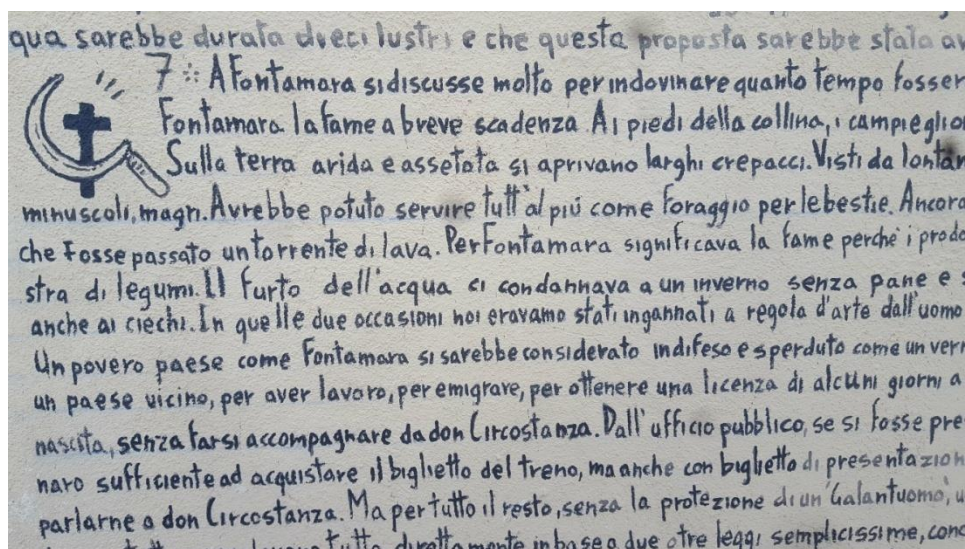 qua sarebbe durata dieci lustri e che questa proposta sarebbe stata av
7 A Fontamara si discusse molto per indovinare quanto tempo fosser
Fontamara la fame a breve scadenza. Ai piedi della collina, i campi e gli or
Sulla terra arida e assetata si aprivano larghi crepacci. Visti da lontan
minuscoli, magri. Avrebbe potuto servire tutt'al più come foraggio per le bestie. Ancora
che fosse passato un torrente di lava. Per Fontamara significava la fame perchè i prodo
stra di legumi. Il furto dell'acqua ci condannava a un inverno senza pane e s
anche ai ciechi. In quelle due occasioni noi eravamo stati ingannati a regola d'arte dall'uomo
Un povero paese come Fontamara si sarebbe considerato indifeso e sperduto come un verm
un paese vicino, per aver lavoro, per emigrare, per ottenere una licenza di alcuni giorni a
nascita, senza farsi accompagnare da don Circostanza. Dall'ufficio pubblico, se si fosse pre
naro sufficiente ad acquistare il biglietto del treno, ma anche con biglietto di presentazion
parlarne a don Circostanza. Ma per tutto il resto, senza la protezione di un 'Galantuomo', u
tutto direttamente in base a due o tre leggi semplicissime, conc